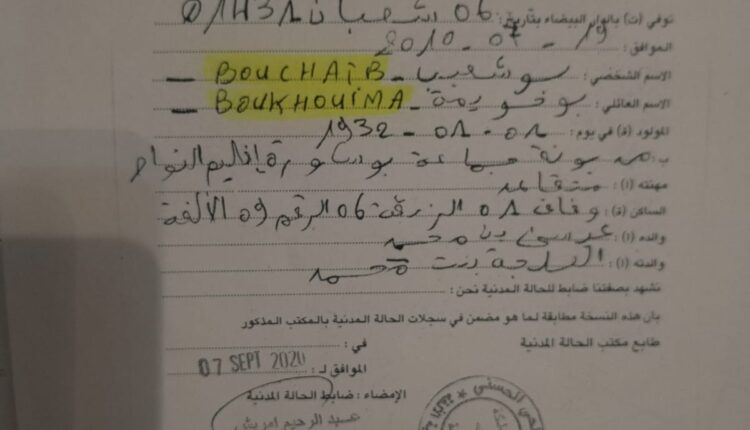 توفي (ت) بالدار البيضاء بتاريخ : 06 شعبان 1431
الموافق : 19 - 07 - 2010
الاسم الشخصي : بوشعيب - BOUCHAIB -
الاسم العائلي : بوخويمة - BOUKHOUIMA -
المولود (ة) في يوم : 01 - 01 - 1932
ب : جماعة
مهنته (ا) : متقاعد
الساكن (ة) : 01 الزنقة 06 الرقم 09 الألفة
والده (ا) : بن محمد
والدته (ا) : بنت محمد
نشهد بصفتنا ضابط للحالة المدنية نحن :
بأن هذه النسخة مطابقة لما هو مضمن في سجلات الحالة المدنية بالمكتب المذكور
طابع مكتب الحالة المدنية في :
الموافق لـ : 07 SEPT 2020
الإمضاء : ضابط الحالة المدنية
عبد الرحيم
الحي الحسني